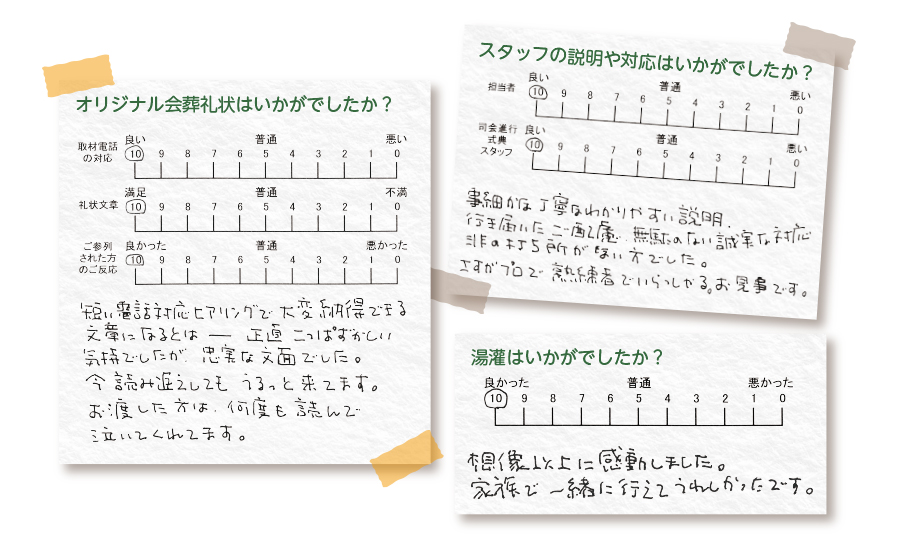 オリジナル会葬礼状はいかがでしたか？
取材電話
の対応
良い 普通 悪い
10 9 8 7 6 5 4 3 2 1 0
礼状文章
満足 普通 不満
10 9 8 7 6 5 4 3 2 1 0
ご参列
された方
のご反応
良かった 普通 悪かった
10 9 8 7 6 5 4 3 2 1 0
短い電話対応ヒアリングで大変納得できる
文章になるとは ― 正直 こっぱずかしい
気持でしたが、忠実な文面でした。
今読み返えしても うるっと来てます。
お渡しした方は、何度も読んで
泣いてくれてます。
スタッフの説明や対応はいかがでしたか？
担当者
良い 普通 悪い
10 9 8 7 6 5 4 3 2 1 0
司会進行
式典
スタッフ
良い 普通 悪い
10 9 8 7 6 5 4 3 2 1 0
事細かな丁寧なわかりやすい説明、
行き届いたご配慮、無駄のない誠実な対応
非の打ち所がない方でした。
さすがプロで熟練者でいらっしゃる。お見事です。
湯灌はいかがでしたか？
良かった 普通 悪かった
10 9 8 7 6 5 4 3 2 1 0
想像以上に感動しました。
家族で一緒に行えてうれしかったです。